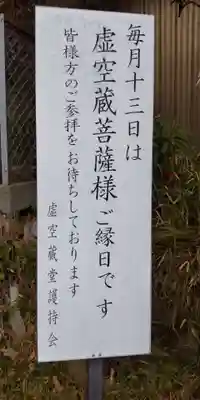 毎月十三日は
虚空蔵菩薩様ご縁日です
皆様方のご参拝をお待ちしております
虚空蔵堂護持会